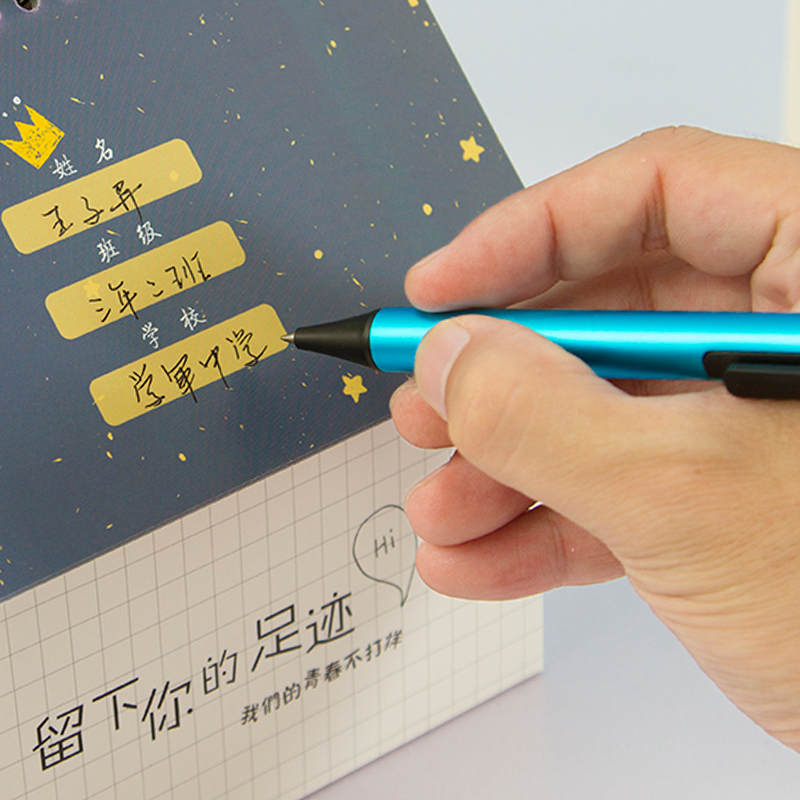 姓 名
王子异
班 级
三年二班
学 校
学军中学
Hi
留下你的足迹
我們的青春不打烊